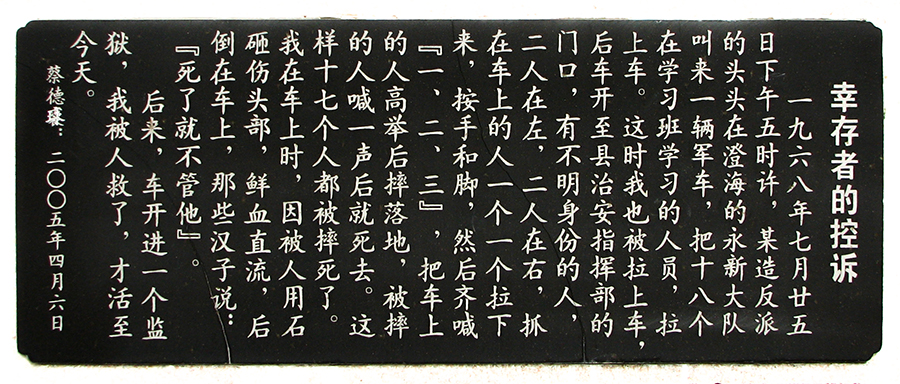 幸存者的控诉
一九六八年七月廿五
日下午五时许，某造反派
的头头在澄海的永新大队
叫来一辆军车，把十八个
在学习班学习的人员，拉
上车。这时我也被拉上车，
后车开至县治安指挥部的
门口，有不明身份的人，
二人在左，二人在右，抓
在车上的人一个一个拉下
来，按手和脚，然后齐喊
『一、二、三』，把车上
的人高举后摔落地，被摔
的人喊一声后就死去。这
样十七个人都被摔死了。
我在车上时，因被人用石
砸伤头部，鲜血直流，后
倒在车上，那些汉子说：
『死了就不管他』。
后来，车开进一个监
狱，我被人救了，才活至
今天。
蔡德：二〇〇五年四月六日